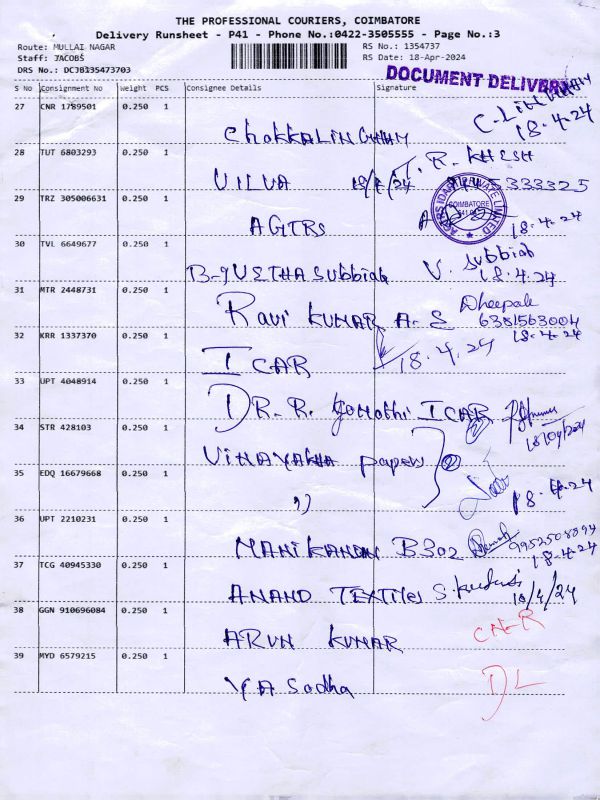 THE PROFESSIONAL COURIERS, COIMBATORE
Delivery Runsheet - P41 - Phone No.:0422-3505555 - Page No.:3
Route: MULLAI NAGAR RS No.: 1354737
Staff: JACOBS RS Date: 18-Apr-2024
DRS No.: DCJB135473703 DOCUMENT DELIVERY
S No Consignment No Weight PCS Consignee Details Signature
27 CNR 1789501 0.250 1
Chokkalingham 18.4.24
28 TUT 6803293 0.250 1
VILVA 18/4/24
29 TRZ 305006631 0.250 1
AGIRS 18.4.24
AGIRS IDAR PRIVATE LIMITED
COIMBATORE
30 TVL 6649677 0.250 1
B-JUETHA Subbiah V. Subbiah
18.4.24
31 MTR 2448731 0.250 1
Ravi KUMAR A-S Dheepak
6381563004
18.4.24
32 KRR 1337370 0.250 1
ICAR 18.4.24
33 UPT 4048914 0.250 1
DR.R. Gomathi ICAR
18/04/224
34 STR 428103 0.250 1
VINAYAKHA papers 2
35 EDQ 16679668 0.250 1
,, 18.4.24
36 UPT 2210231 0.250 1
MANIKANDAN B302 9952508894
18.4.24
37 TCG 40945330 0.250 1
ANAND TEXTILES 18/4/24
38 GGN 910696084 0.250 1
ARUN KUMAR CN-R
39 MYD 6579215 0.250 1
YASodha DL